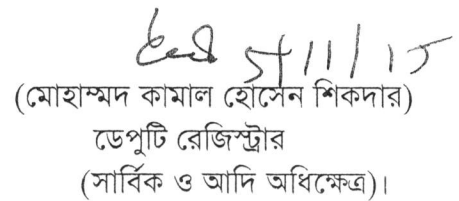 5/11/15
(মোহাম্মদ কামাল হোসেন শিকদার)
ডেপুটি রেজিস্ট্রার
(সার্বিক ও আদি অধিক্ষেত্র)।